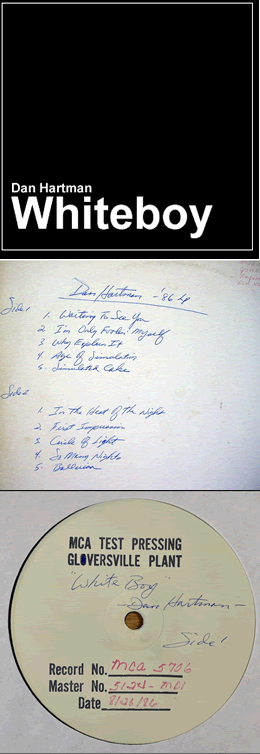 Dan Hartman
Whiteboy
Dan Hartman - '86 Lp
Side 1
1. Waiting To See You
2 I'm Only Foolin' Myself
3 Why Explain It
4. Age of Simulation
5. Simulated
Side 2
1. In The Heat of The Night
2 First Impression
3 Circle of Light
4. So Many Nights
5. Ballerina
MCA TEST PRESSING
GLOVERSVILLE PLANT
"White Boy"
- Dan Hartman -
Side 1
Record No. MCA 5706
Master No.
Date 8/26/86